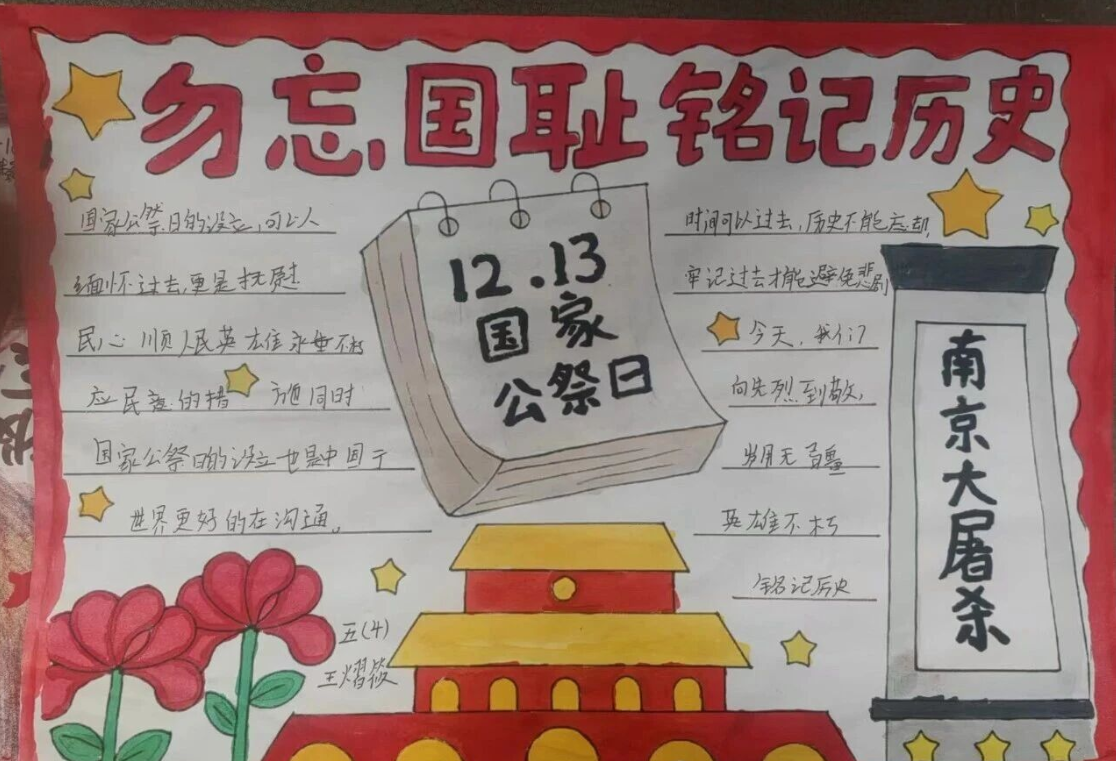 勿忘国耻铭记历史
国家公祭日的设立,可以人
缅怀过去,更是抚慰
民心 顺人民英雄永垂不朽
应民意的措 施同时
国家公祭日的设立也是中国于
世界更好的在沟通。
12.13
国家
公祭日
时间可以过去,历史不能忘却,
牢记过去才能避免悲剧
今天,我们
向先烈到敬,
岁月无疆
英雄不朽
铭记历史
南京大屠杀
五(4)
王熠